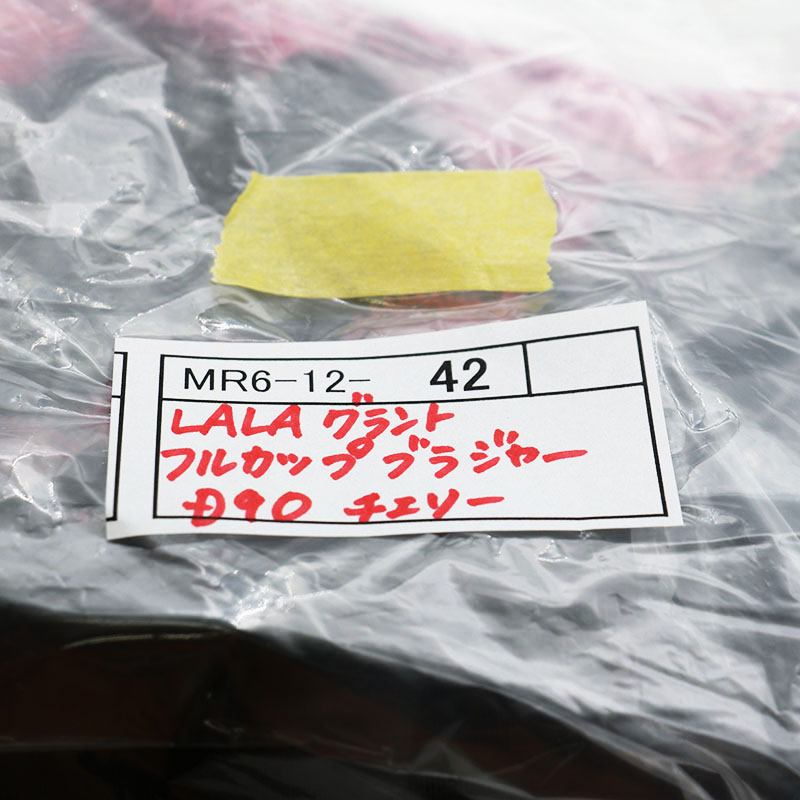 MR6-12- 42
LALA グラント
フルカップ ブラジャー
D90 チェリー